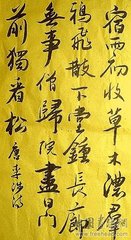 宿雨初收草木濃群
鴉飛散下堂鐘長廊
無事僧歸院盡日門
前獨看松 唐李涉詩